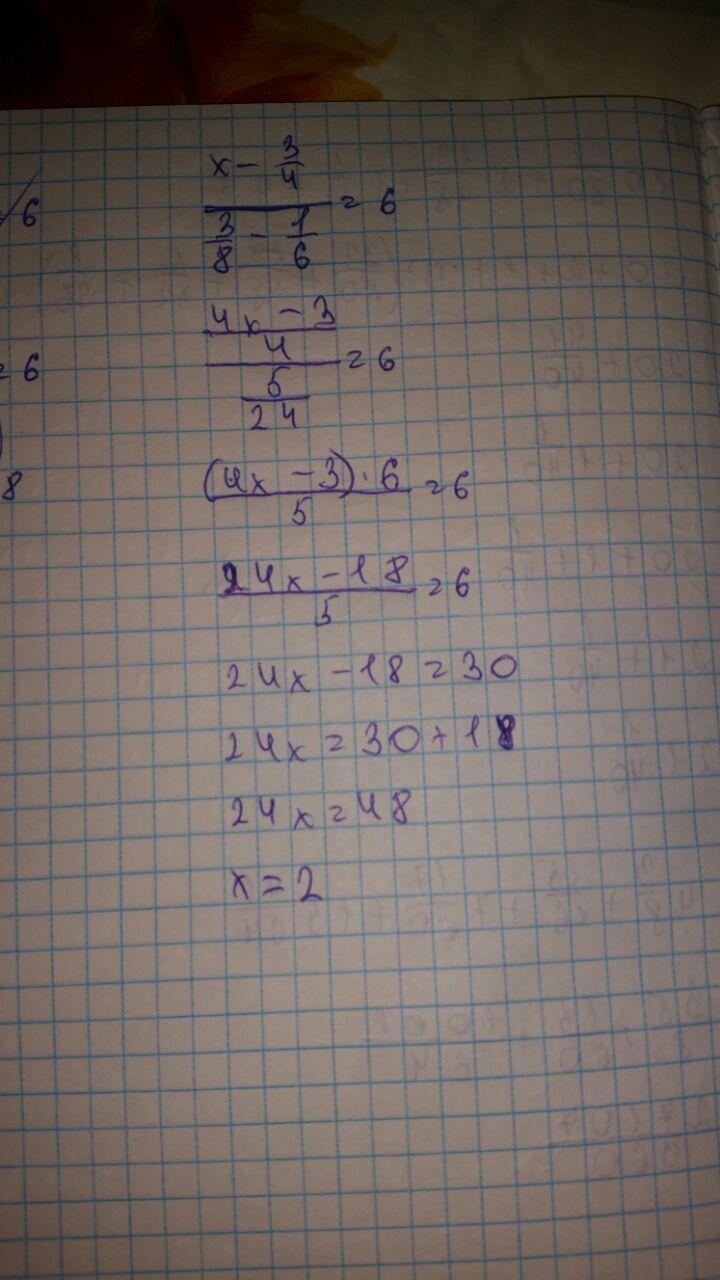 /6
= 6
8
x - 3/4
/ 3/8 - 1/6 = 6
4x - 3
/ 4 / 5/24 = 6
(4x - 3) · 6 / 5 = 6
24x - 18 / 5 = 6
24x - 18 = 30
24x = 30 + 18
24x = 48
x = 2